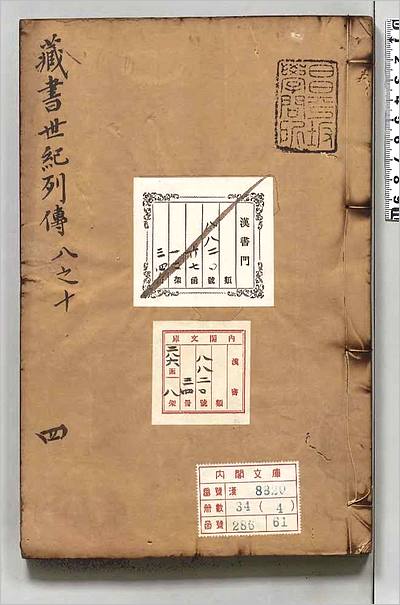 藏書世紀列傳 八之十
四
昌平坂
學問所
漢書門
類
號
函
架
內閣文庫
漢書
八八二〇
類
號
三四
冊
二八六
函
八
架
內閣文庫
番號 漢 8820
冊數 34(4)
函號 286 61